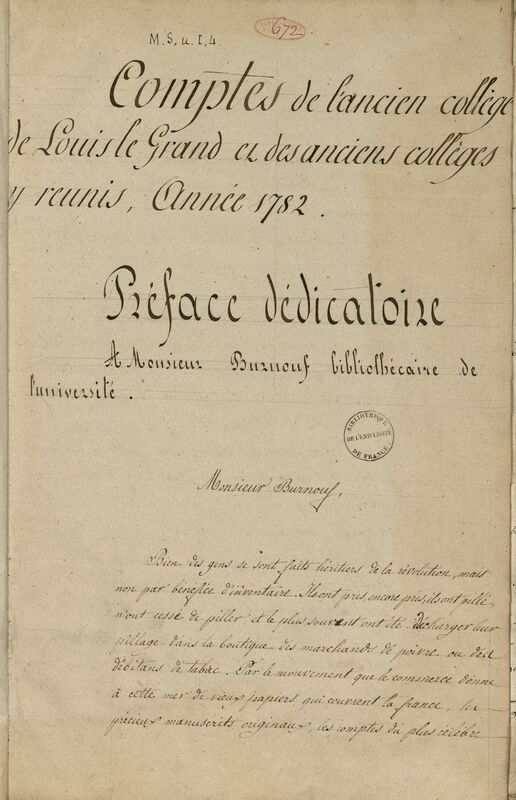 672
M.S.u.I,4.
Comptes de l'ancien collège
de Louis le Grand et des anciens collèges
y reunis, Année 1782.
Préface dédicatoire
A Monsieur Burnouf bibliothécaire de
l'université.
BIBLIOTHEQUE
DE L'UNIVERSITÉ
DE FRANCE.
Monsieur Burnouf,
Bien des gens se sont faits héritiers de la révolution, mais
non par bénéfice d'inventaire. Ils ont pris, encore pris, ils ont pillé,
n'ont cessé de piller et le plus souvent ont été décharger leur
pillage dans la boutique des marchands de poivre ou des
débitans de tabac. Par le mouvement que le commerce donne
à cette mer de vieux papiers qui couvrent la france, les
précieux manuscrits originaux, les comptes du plus célèbre